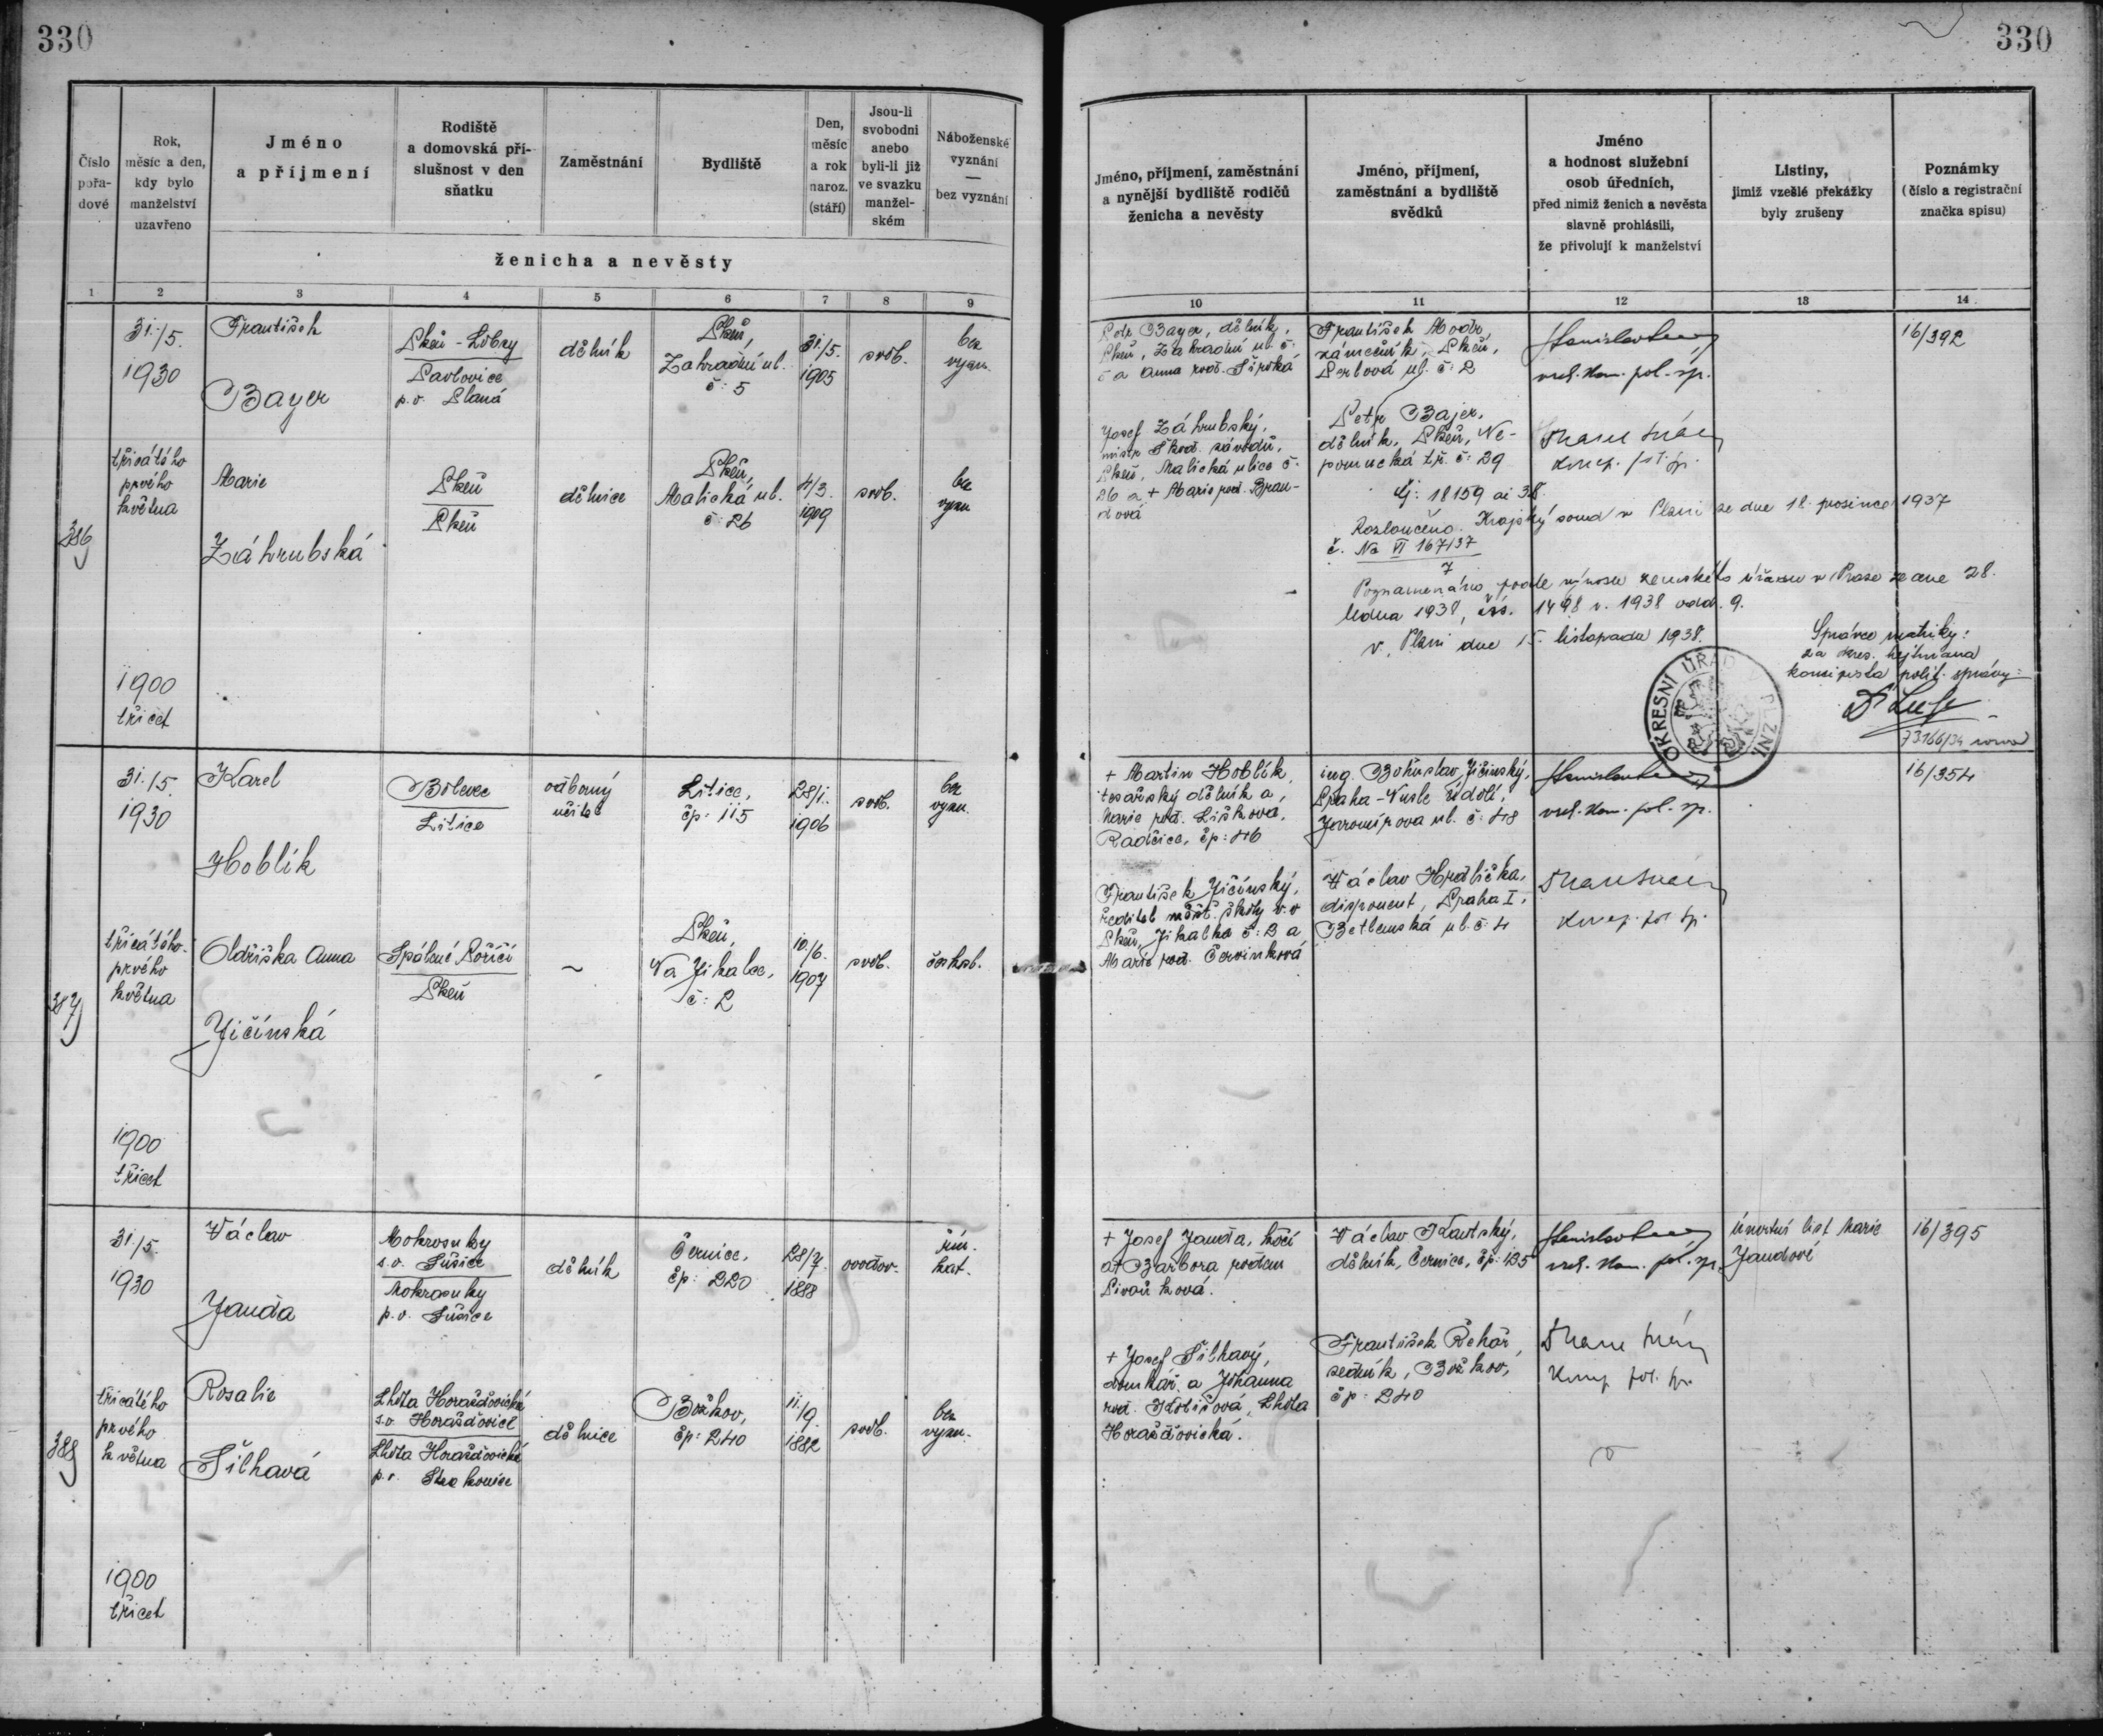 330
330
Číslo pořa-dové
Rok, měsíc a den, kdy bylo manželství uzavřeno
Jméno a příjmení
Rodiště a domovská pří-slušnost v den sňatku
Zaměstnání
Bydliště
Den, měsíc a rok naroz. (stáří)
Jsou-li svobodni anebo byli-li již ve svazku manžel-ském
Náboženské vyznání — bez vyznání
ženicha a nevěsty
1 2 3 4 5 6 7 8 9
386
31./5.
1930
třicátého
prvého
května
1900
třicet
František
Bayer
Plzeň - Lobzy
Pavlovice
p. o. Planá
dělník
Plzeň,
Zahradní ul.
č: 5
31./5.
1905
svob.
bez
vyzn.
Marie
Záhrubská
Plzeň
Plzeň
dělnice
Plzeň,
Malická ul.
č: 26
4/3.
1909
svob.
bez
vyzn
387
31./5.
1930
třicátého-
prvého
května
1900
třicet
Karel
Hoblík
Bolevec
Litice
odborný
učitel
Litice,
čp: 115
28/1.
1906
svob.
bez
vyzn.
Oldřiška Anna
Jičínská
Spálené Poříčí
Plzeň
~
Plzeň,
Na Jíkalce,
č: 2
10./6.
1907
svob.
českob.
388
31./5.
1930
třicátého
prvého
května
1900
třicet
Václav
Janda
Mokrosuky
s.o. Sušice
Mokrosuky
p. o. Sušice
dělník
Černice,
čp: 220
28/7.
1888
ovdov.
řím.
kat.
Rosalie
Šilhavá
Lhota Horažďovická
s.o. Horažďovice
Lhota Horažďovická
p. o. Strakonice
dělnice
Božkov,
čp: 240
11./9.
1882
svob.
bez
vyzn.
Jméno, příjmení, zaměstnání a nynější bydliště rodičů ženicha a nevěsty
Jméno, příjmení, zaměstnání a bydliště svědků
Jméno a hodnost služební osob úředních, před nimiž ženich a nevěsta slavně prohlásili, že přivolují k manželství
Listiny, jimiž vzešlé překážky byly zrušeny
Poznámky (číslo a registrační značka spisu)
10 11 12 13 14
Petr Bayer, dělník,
Plzeň, Zahradní ul. č:
5 a Anna rod. Široká
František Modr,
zámečník, Plzeň,
Perlová ul. č: 2
vrch. kom. pol. sp.
16/392
Josef Záhrubský,
mistr Škod. závodů,
Plzeň, Malická ulice č:
26 a + Marie rod. Bran-
dová
Petr Bajer,
dělník, Plzeň, Ne-
pomucká tř. č: 29
koncip. pol. sp.
čj: 18159 ai 38.
Rozloučeno. Krajský soud v Plzni ze dne 18. prosince 1937
č. Nc VI 167/37
7
Poznamenáno podle výnosu zemského úřadu v Praze ze dne 28.
ledna 1938, čís. 1498 r. 1938 odd. 9.
V Plzni dne 15. listopadu 1938.
Správce matriky:
za okres. hejtmana
koncipista polit. správy:
OKRESNÍ ÚŘAD V PLZNI
+ Martin Hoblík,
tesařský dělník a
Marie rod. Lišková,
Radčice, čp: 46
ing. Bohuslav Jičínský,
Praha - Nusle Údolí,
Jaromírova ul. č: 48
vrch. kom. pol. sp.
16/354
František Jičínský,
ředitel měšť. školy v. v.
Plzeň, Jíkalka č: 2 a
Marie rod. Červinková
Václav Hrdlička,
disponent, Praha I,
Betlemská ul. č: 4
koncip. pol. sp.
+ Josef Janda, kočí
a + Barbora rodem
Pivoňková.
Václav Kautský,
dělník, Černice, čp: 135
vrch. kom. pol. sp.
úmrtní list Marie
Jandové
16/395
+ Josef Šilhavý,
domkář a Johanna
rod. Kolišová, Lhota
Horažďovická.
František Řehoř,
sedník, Božkov,
čp: 240
koncip. pol. sp.